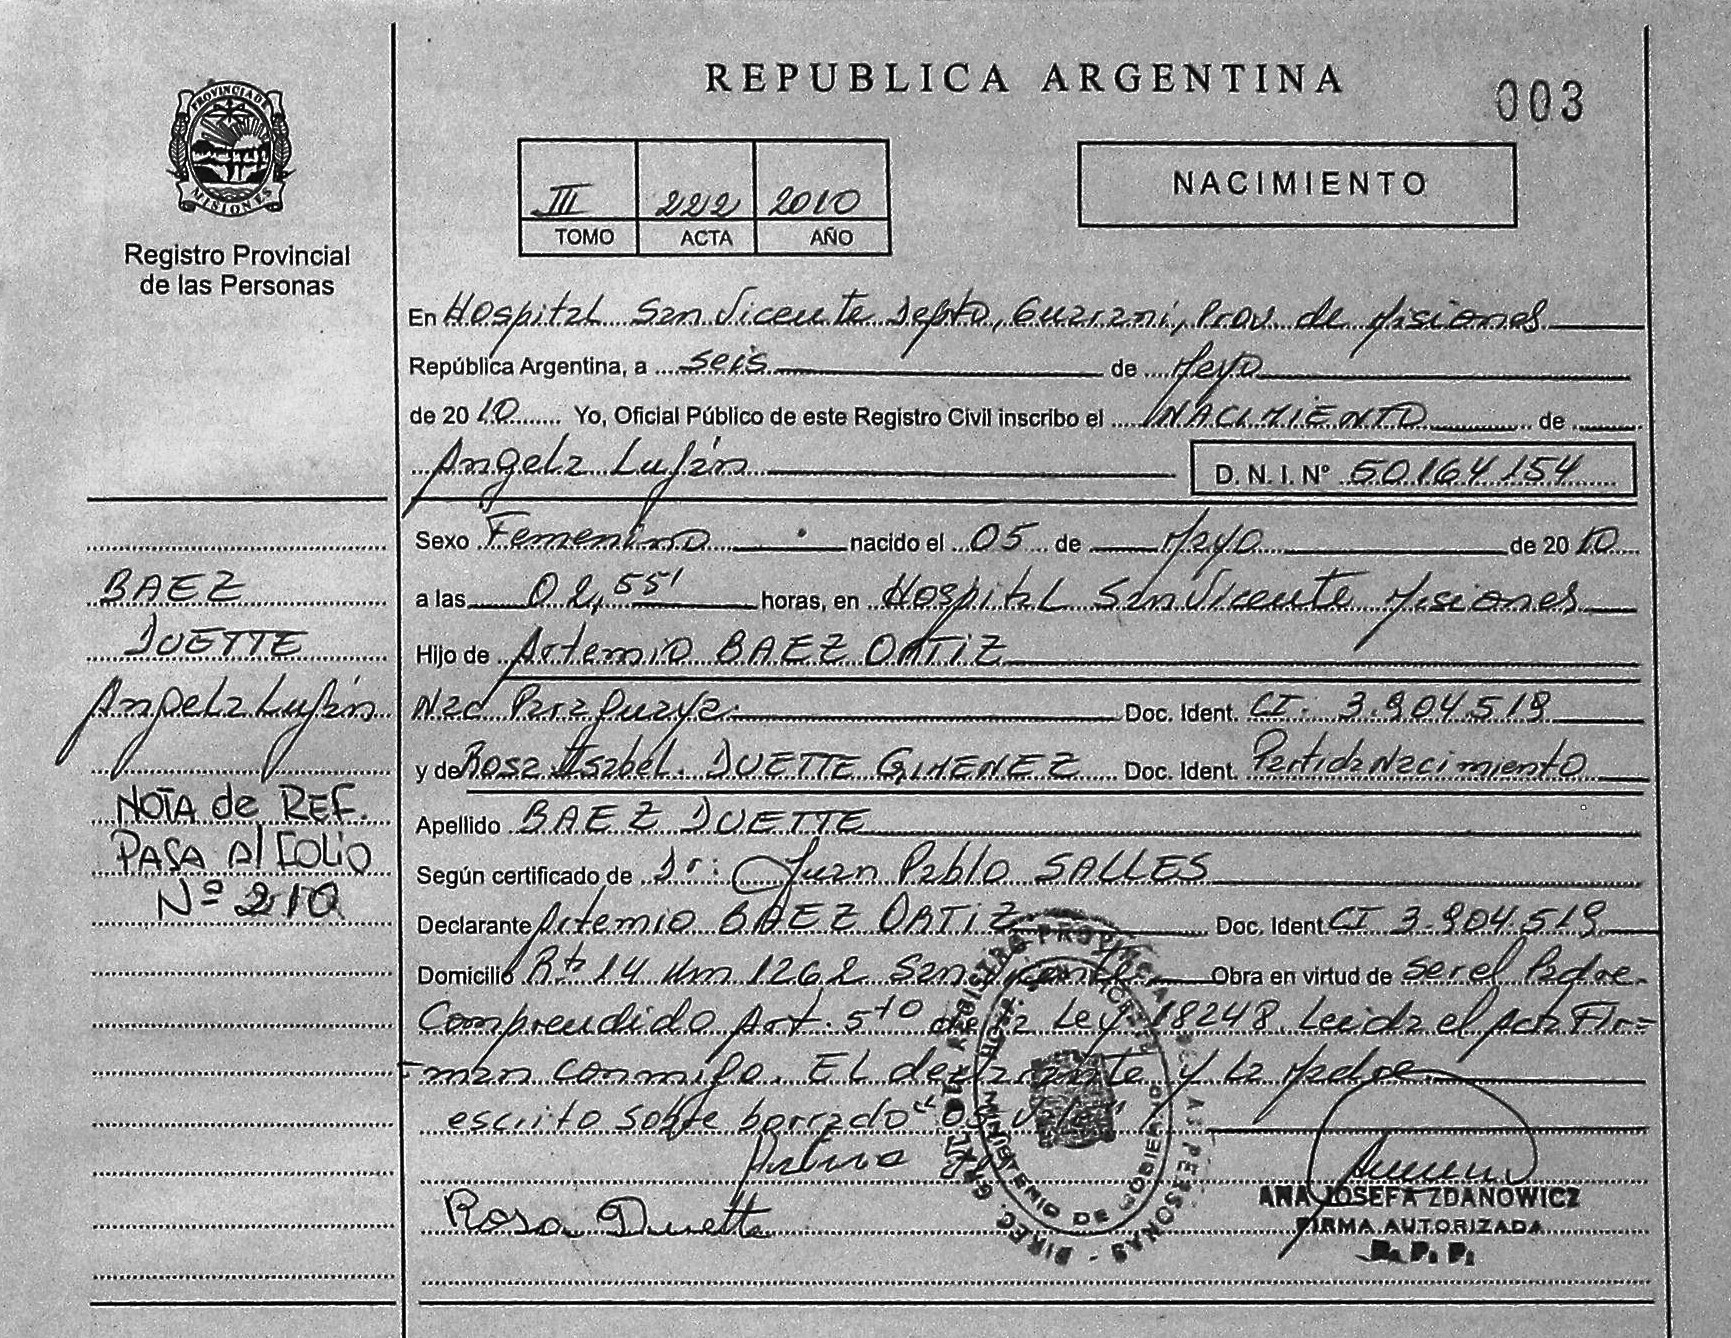 REPUBLICA ARGENTINA
003
PROVINCIA DE
MISIONES
Registro Provincial
de las Personas
III 222 2010
TOMO ACTA AÑO
NACIMIENTO
En Hospital San Vicente Depto, Guarani, Prov. de Misiones
República Argentina, a seis de Mayo
de 2010 Yo, Oficial Público de este Registro Civil inscribo el NACIMIENTO de
Angela Luján D. N. I. Nº 50.164.154
Sexo Femenino nacido el 05 de Mayo de 2010
a las 02,55' horas, en Hospital San Vicente Misiones
Hijo de Artemio BAEZ ORTIZ
Nac Paraguaya. Doc. Ident. CI. 3.904.519
y de Rosa Isabel. DUETTE GIMENEZ Doc. Ident. Partida Nacimiento
Apellido BAEZ DUETTE
Según certificado de Dr: Juan Pablo SALLES
Declarante Artemio BAEZ ORTIZ Doc. Ident CI 3.904.519
Domicilio Rta 14 Km 1262 San Vicente Obra en virtud de ser el Padre.
Comprendido Art. 5to de la Ley 18248. Leida el Acta Fir=
=man conmigo. El declarante y La Madre
escrito sobre borrado "05 vale"
Rosa Duette
ANA JOSEFA ZDANOWICZ
FIRMA AUTORIZADA
BAEZ
DUETTE
Angela Luján
NOTA de REF.
PASA Al FOLiO
Nº 210
DIREC. GRAL. DEL REGISTRO PROVINCIAL DE LAS PERSONAS
MINISTERIO DE GOBIERNO